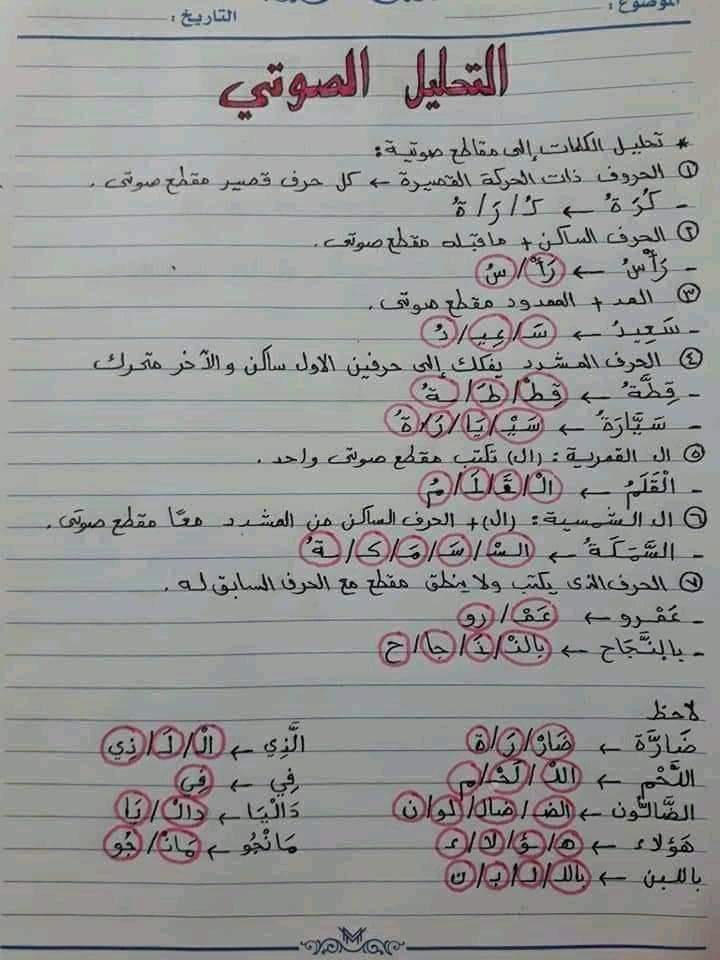 الموضوع :
التاريخ :
التحليل الصوتي
* تحليل الكلمات إلى مقاطع صوتية :
١ الحروف ذات الحركة القصيرة ← كل حرف قصير مقطع صوتى .
- كُرَةُ ← كُ / رَ / ةُ
٢ الحرف الساكن + ماقبله مقطع صوتى .
- رَأْسُ ← رَأْ / سُ
٣ المد + الممدود مقطع صوتى .
- سَعِيدُ ← سَ / عِيـ / دُ
٤ الحرف المشدد يفكك إلى حرفين الاول ساكن والآخر متحرك
- قِطَّةُ ← قِطْ / طَـ / ـةُ
- سَيَّارَةُ ← سَيْـ / يَا / رَ / ةُ
٥ ال القمرية : (ال) تكتب مقطع صوتى واحد .
- الْقَلَمُ ← الْـ / قَـ / لَـ / مُ
٦ ال الشمسية : (ال) + الحرف الساكن من المشدد معًا مقطع صوتى .
- السَّمَكَةُ ← السْـ / سَـ / مَـ / كَـ / ـةُ
٧ الحرف الذى يكتب ولا ينطق مقطع مع الحرف السابق له .
- عَمْرو ← عَمْـ / رو
- بِالنَّجَاح ← بالنْـ / نَـ / جا / ح
لاحظ
ضَارَّة ← ضَارْ / رَ / ة
الَّذِي ← الْـ / لَـ / ذِي
اللَّحْم ← اللـْ / لَحْـ / م
فِي ← فِي
الضَّالُّون ← الضـ / ضال / لو / ن
دَالْيَا ← دالْـ / يَا
هَؤلاء ← هـ / ؤ / لا / ء
مَانْجُو ← مَانْـ / جُو
باللبن ← باللـ / لـ / بـ / ن